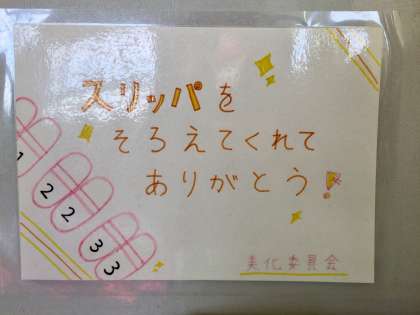 スリッパを
そろえてくれて
ありがとう!
1 2 2 3 3
美化委員会